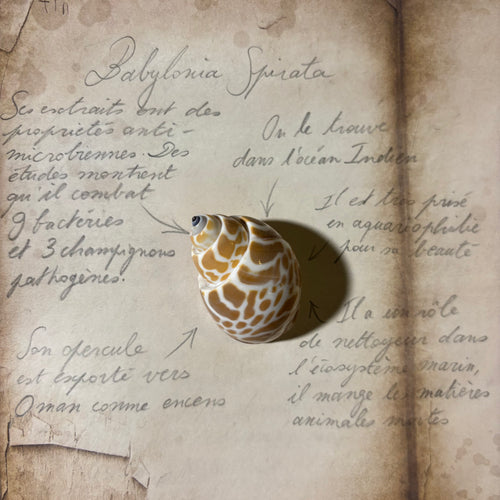 Babylonia Spirata
Ses extraits ont des
propriétés anti-
microbiennes. Des
études montrent
qu'il combat
9 bactéries
et 3 champignons
pathogènes.
On le trouve
dans l'océan Indien
Il est très prisé
en aquariophilie
pour sa beauté
Son opercule
est exporté vers
Oman comme encens
Il a un rôle
de nettoyeur dans
l'écosystème marin,
il mange les matières
animales mortes